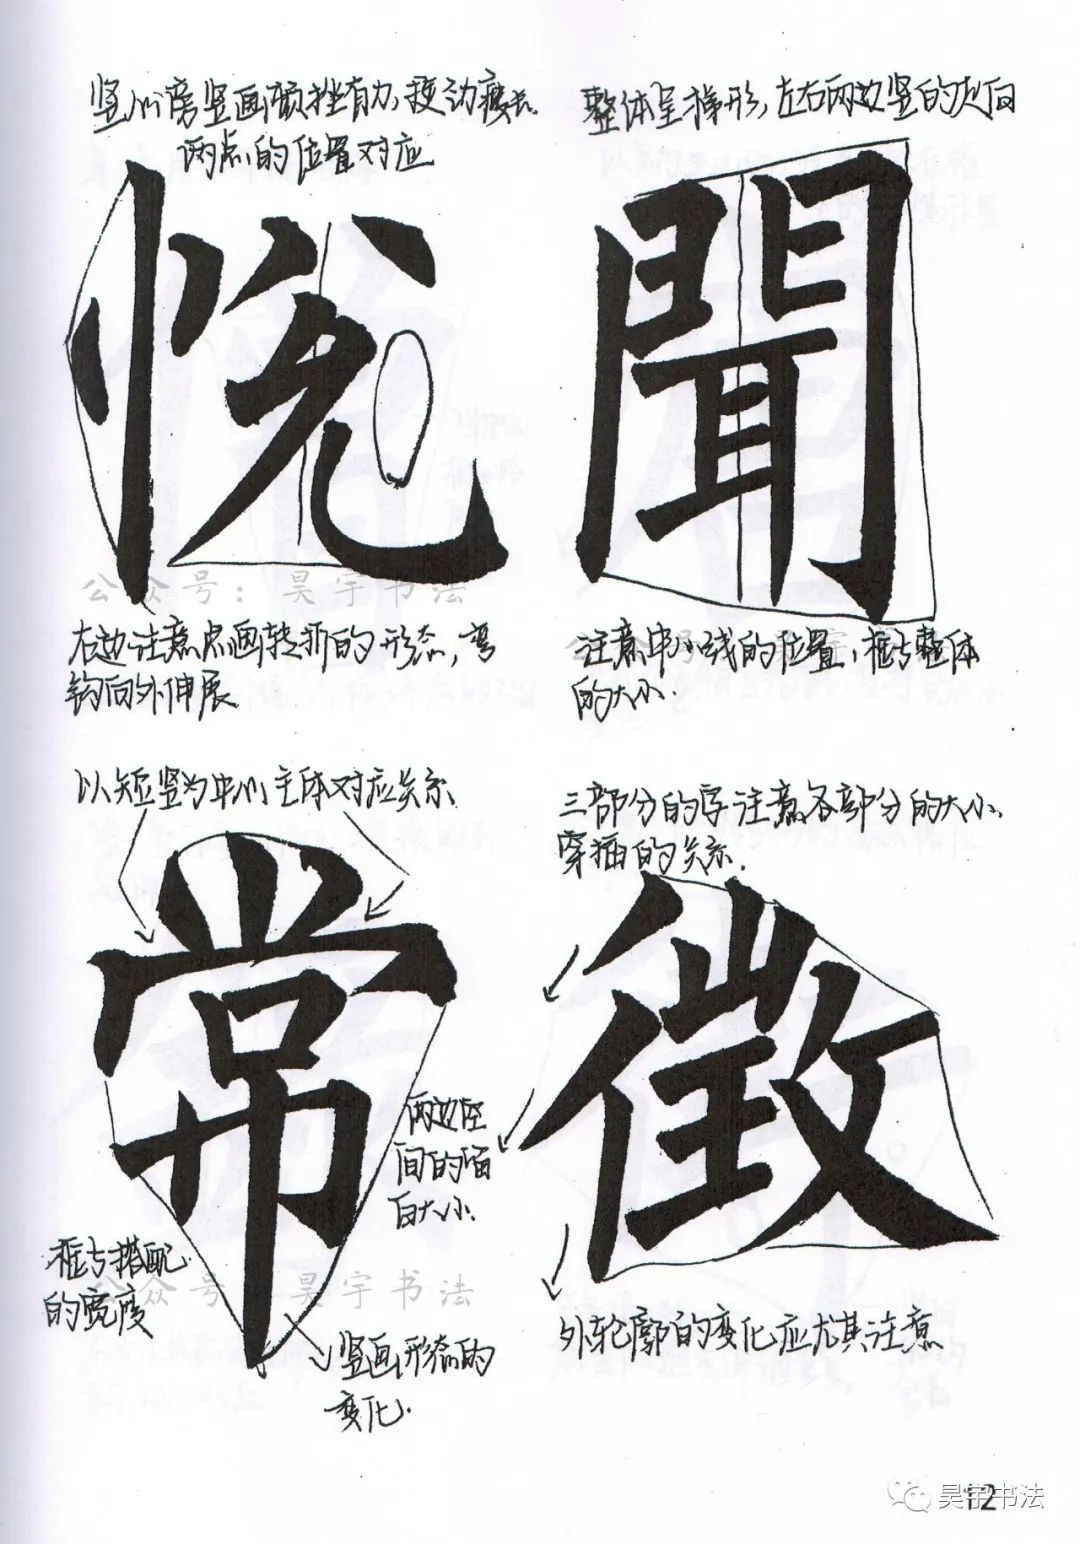 竖心旁竖画顿挫有力,
两点的位置对应
整体呈梯形,左右两边竖的
悦
聞
公众号：昊宇书法
右边注意点画转折的形态,弯
钩向外伸展
注意中心线的位置,框与整体
的大小.
以短竖为中心,主体对应关系.
三部分的字注意各部分的大小,
穿插的关系.
常
徵
两边空
间的留
白大小.
框与搭配
的宽度
公众号：昊宇书法
竖画形态的
变化.
外轮廓的变化应尤其注意
12
昊宇书法